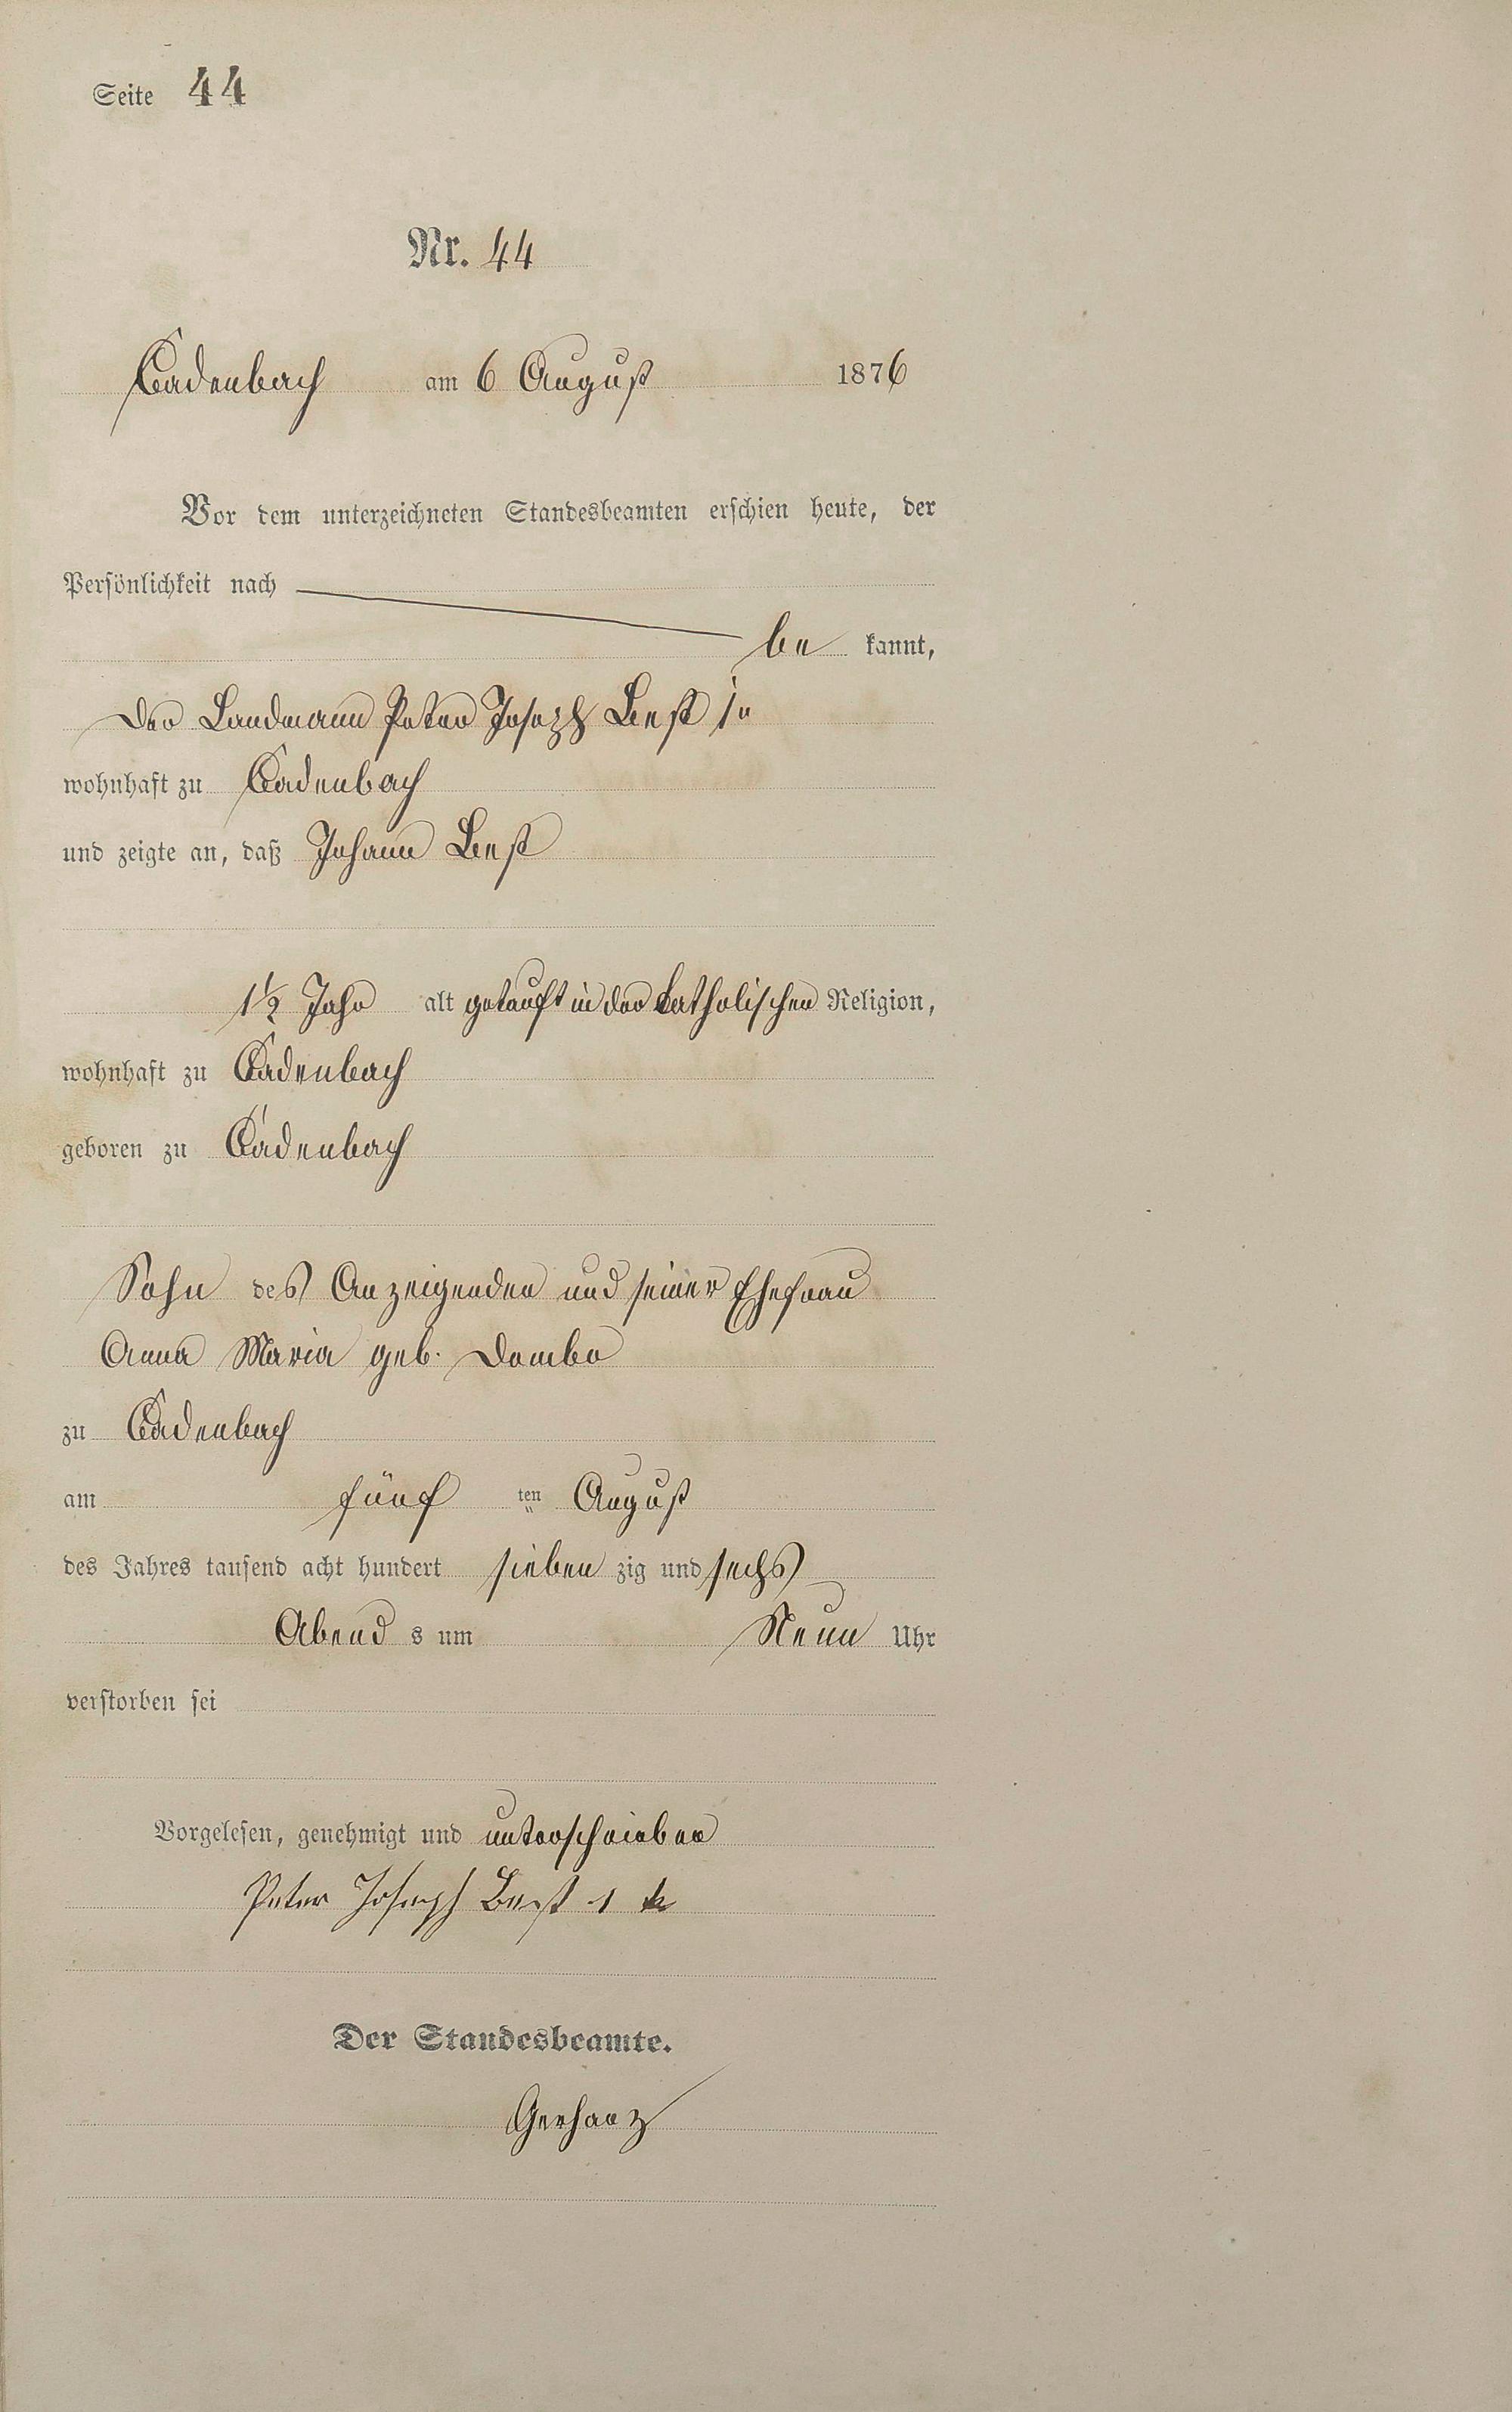 Seite 44
Nr. 44
Cadenbach am 6 August 1876
Vor dem unterzeichneten Standesbeamten erschien heute, der
Persönlichkeit nach
be kannt,
der Landmann Peter Joseph Best
wohnhaft zu Cadenbach
und zeigte an, daß Johann Best
1½ Jahr alt getauft in der katholischen Religion,
wohnhaft zu Cadenbach
geboren zu Cadenbach
Sohn des Anzeigenden und seiner Ehefrau
Anna Maria geb.
zu Cadenbach
am fünf ten August
des Jahres tausend acht hundert sieben zig und sechs
Abend s um Neun Uhr
verstorben sei
Vorgelesen, genehmigt und unterschrieben
Peter Joseph Best 1
Der Standesbeamte.
Gerharz